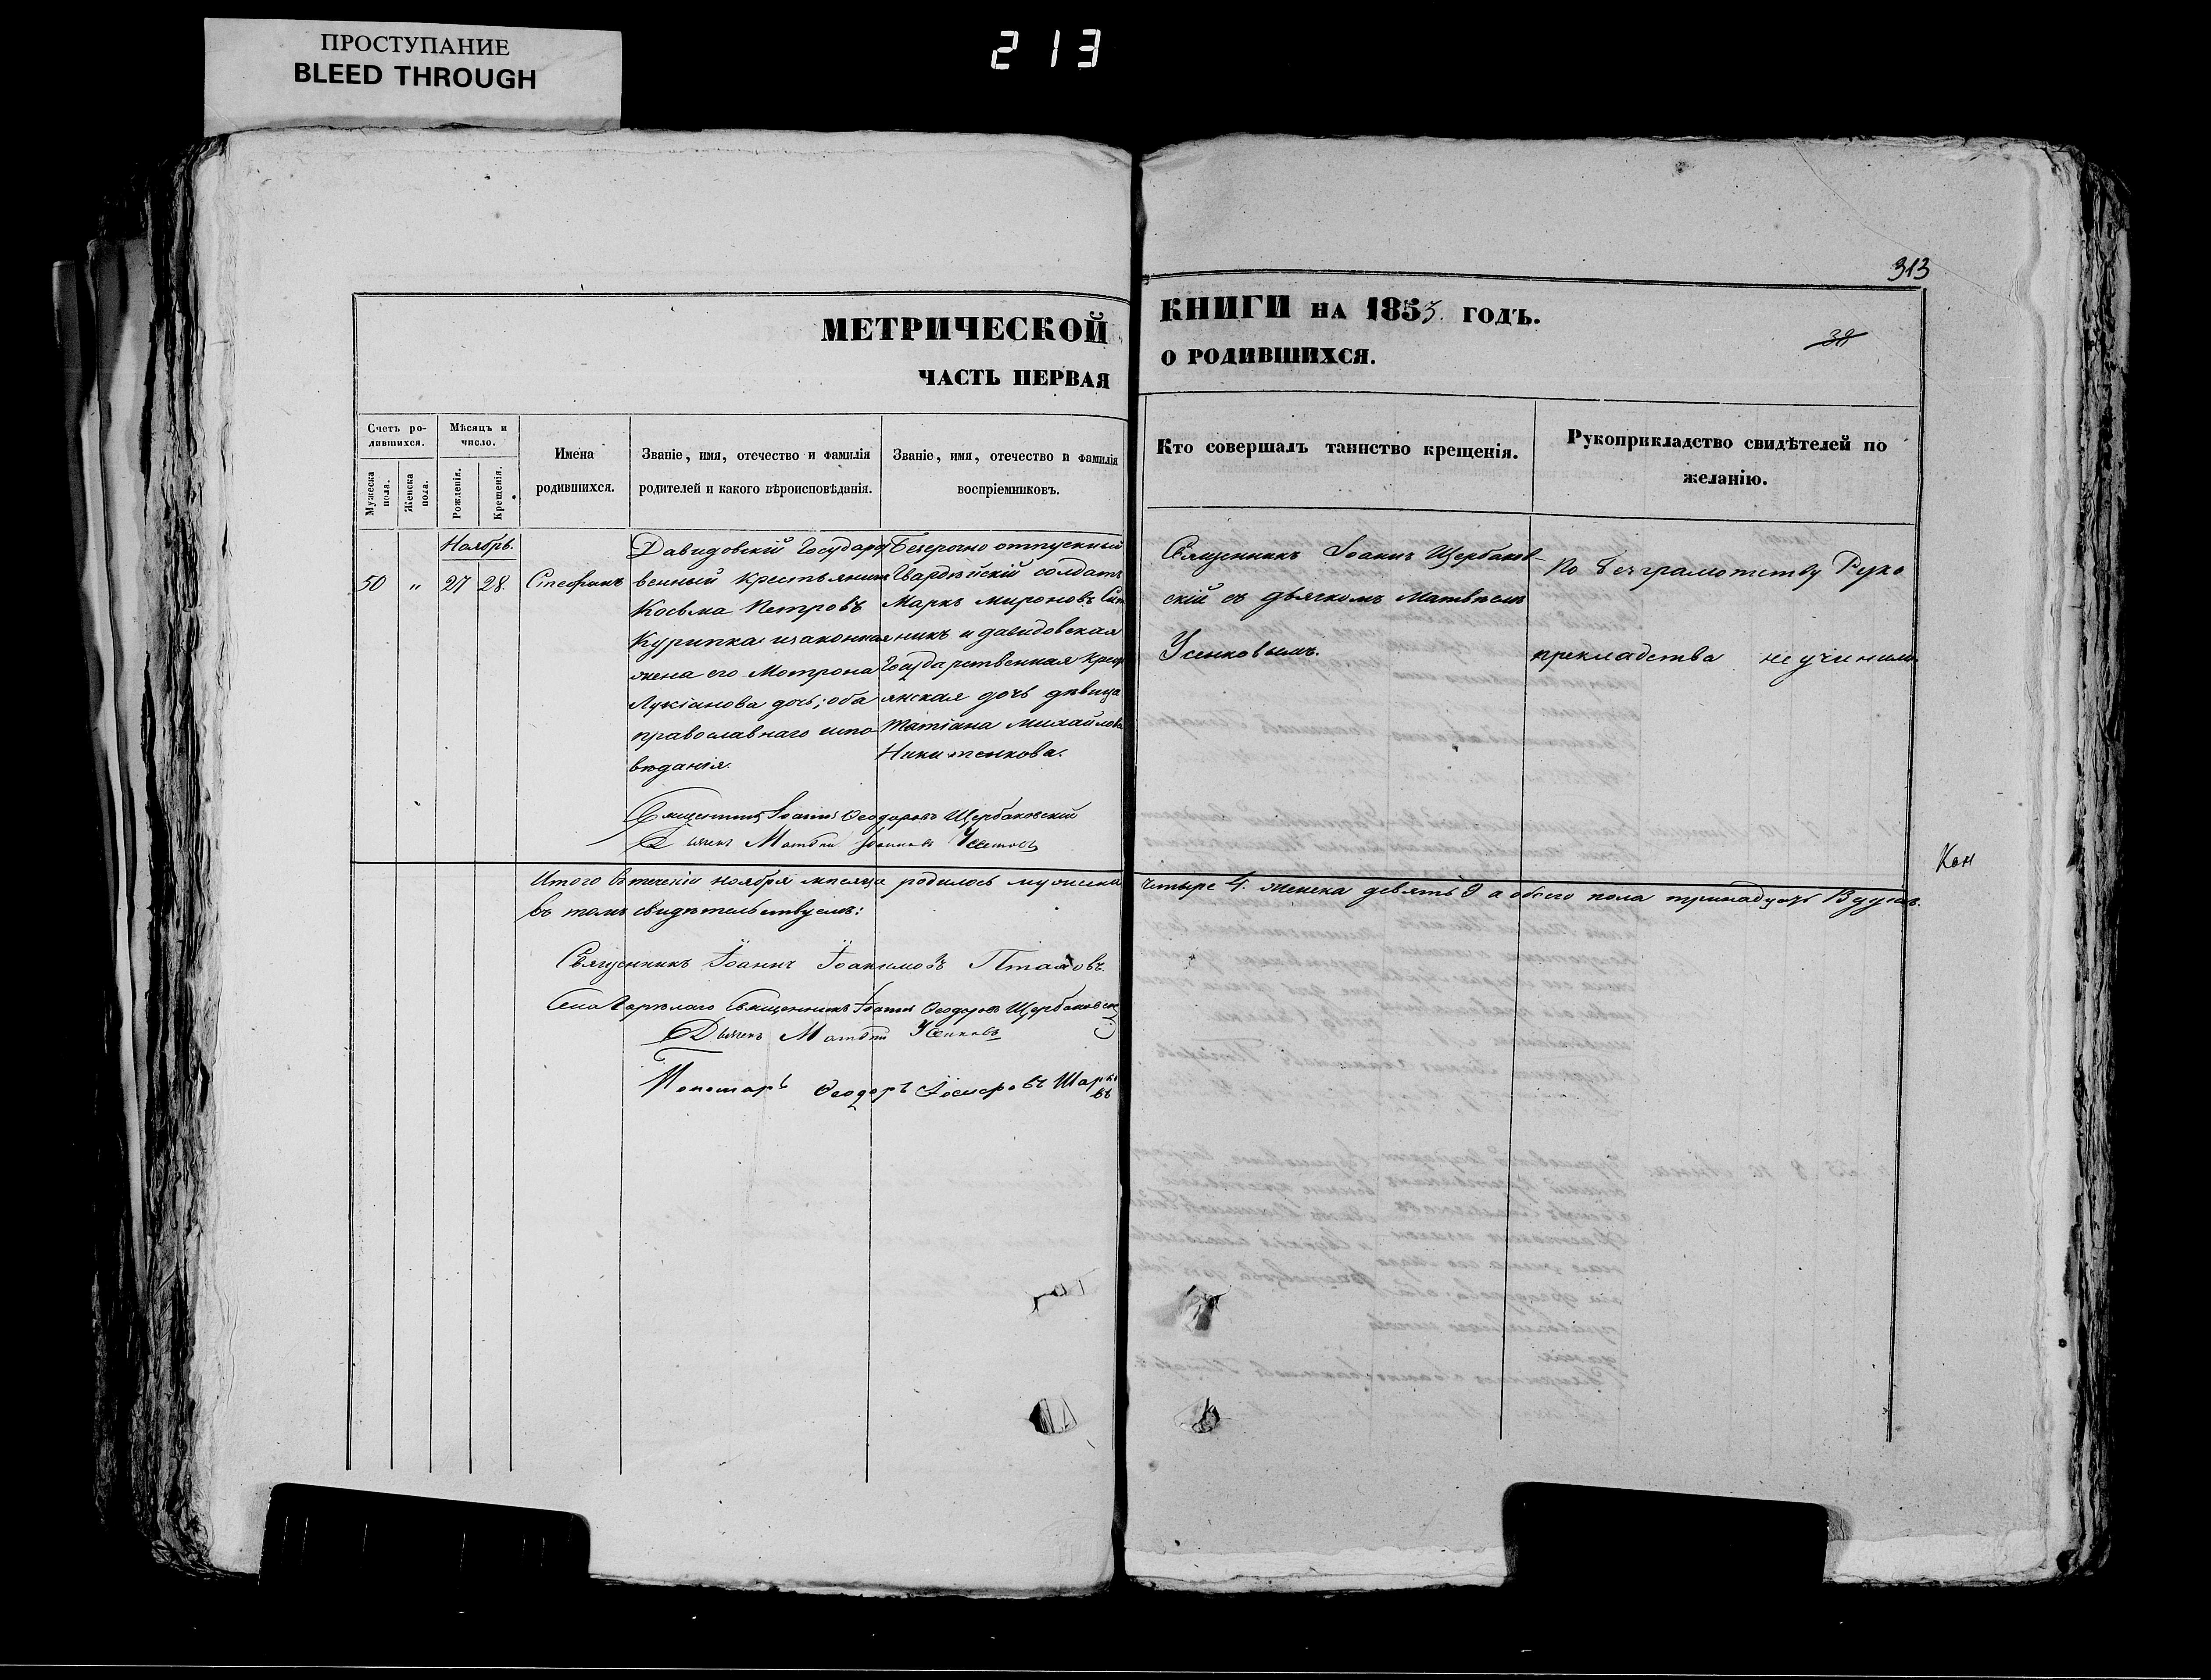 ПРОСТУПАНИЕ
BLEED THROUGH
213
313
МЕТРИЧЕСКОЙ
КНИГИ НА 1853 ГОДЪ.
38
ЧАСТЬ ПЕРВАЯ
О РОДИВШИХСЯ.
Счетъ ро-
дившихся.
Мужеска пола.
Женска пола.
Мѣсяцъ и число.
Рожденія.
Крещенія.
Имена
родившихся.
Званіе, имя, отечество и фамилія
родителей и какого вѣроисповѣданія.
Званіе, имя, отечество и фамилія
воспріемниковъ.
Кто совершалъ таинство крещенія.
Рукоприкладство свидѣтелей по
желанію.
Ноябрь.
50 " 27 28. Стефанъ
Давидовскій Государст
венный крестьянинъ
Косьма Петровъ
Курипка и законная
жена его Мотрона
Лукіанова дочь; оба
православнаго испо-
вѣданія.
Безсрочно отпускный
Гвардѣйскій солдатъ
Маркъ Мироновъ
никъ и давидовская
Государственная крест
янская дочь дѣвица
Татіана Михайлова
Никитенкова.
Священникъ Іоаннъ Щербаков-
скій съ дьячкомъ Матвѣемъ
Усенковымъ.
По безграмотству Руко
прекладства не учинили.
Священникъ Іоаннъ Ѳеодоровъ Щербаковскій
Дьячекъ Матвѣй
Итого въ теченіи ноября мѣсяца родилось мужеска четыре 4. женска девять 9 а обоего пола тринадцать 13 душъ.
въ томъ свидѣтельствуемъ:
Кон
Священникъ Іоаннъ Іоакимовъ
Села Священникъ Іоаннъ Ѳеодоровъ Щербаковскій
Дьячекъ Матвѣй Усенковъ
Пономарь Ѳеодоръ Іосифовъ